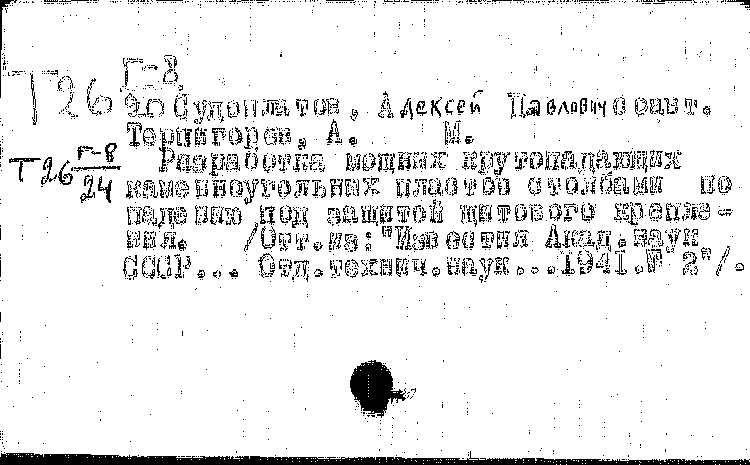 Г-8
Т26 20 Судоплатов, Алексей Павлович соавт.
Терпигорев, А. М.
Т26 Г-8/24 Разработка мощных крутопадающих
каменноугольных пластов столбами по
падению под защитой щитового крепле-
ния. /Отт.из: "Известия Акад.наук
СССР... Отд.технич.наук...1941.№ 2"/.